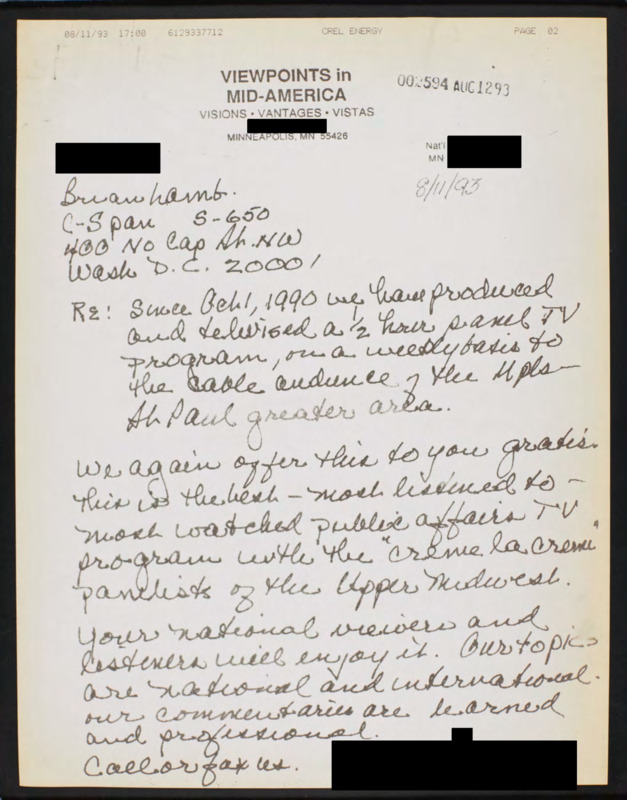 08/11/93 17:00 6129337712 CREL ENERGY PAGE 02
VIEWPOINTS in
MID-AMERICA
VISIONS • VANTAGES • VISTAS
MINNEAPOLIS, MN 55426
002594 AUG1293
Nat'l
MN
8/11/93
Brian Lamb.
C-Span S-650
400 No Cap St. NW
Wash D.C. 20001
RE: Since Oct 1, 1990 we have produced
and televised a ½ hour panel TV
program, on a weekly basis to
the cable audience of the Mpls-
St Paul greater area.
We again offer this to you gratis.
This is the best - most listened to -
most watched public affairs TV
program with the "creme la creme"
panelists of the Upper Midwest.
Your national viewers and
listeners will enjoy it. Our topics
are national and international.
our commentaries are learned
and professional.
Call or fax us.